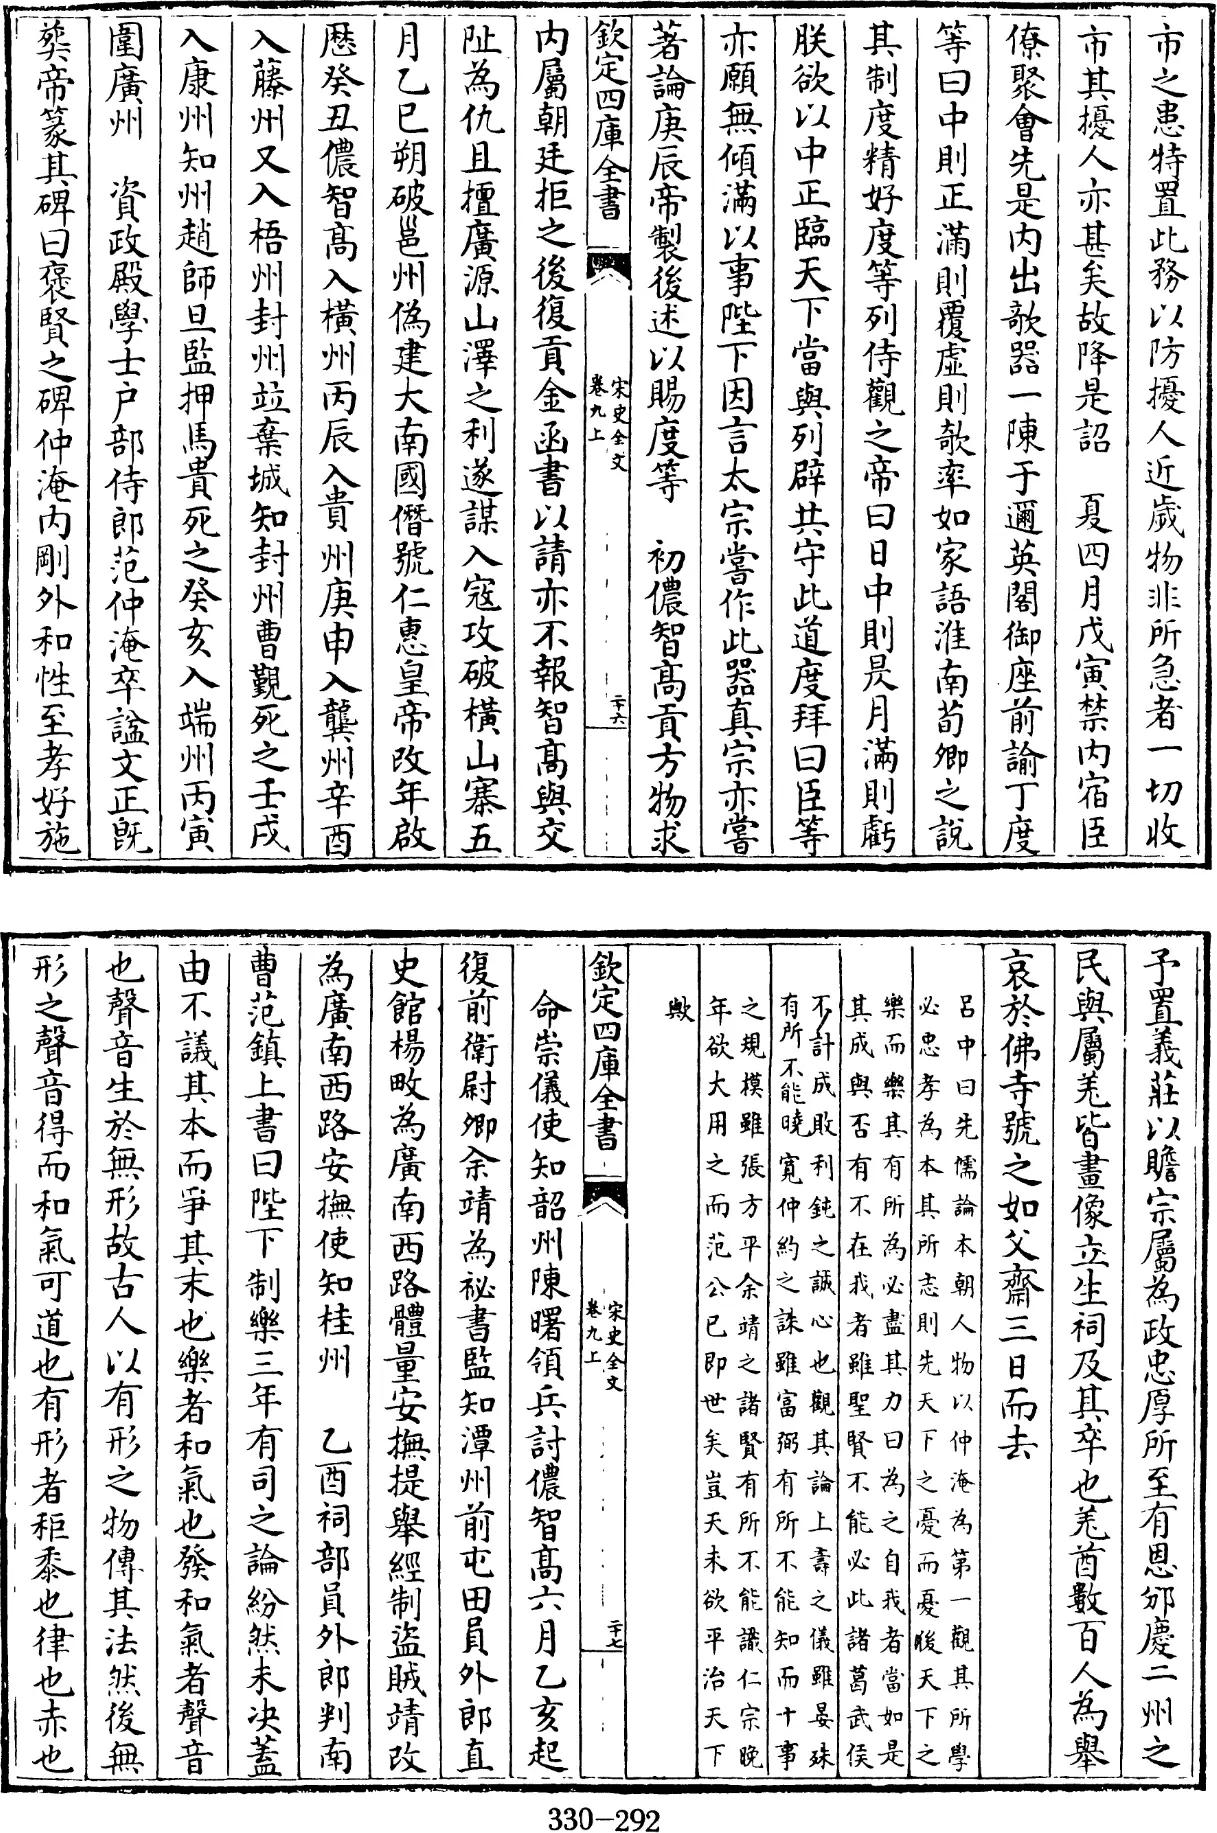 市之患特置此務以防擾人近歲物非所急者一切收
市其擾人亦甚矣故降是詔　夏四月戊寅禁内宿臣
僚聚會先是内出欹器一陳于邇英閣御座前諭丁度
等曰中則正滿則覆虚則欹率如家語淮南荀卿之説
其制度精好度等列侍觀之帝曰日中則昃月滿則虧
朕欲以中正臨天下當與列辟共守此道度拜曰臣等
亦願無傾滿以事陛下因言太宗嘗作此器真宗亦嘗
著論庚辰帝製後述以賜度等　初儂智髙貢方物求
欽定四庫全書
宋史全文
卷九上
二十六
内屬朝廷拒之後復貢金函書以請亦不報智髙與交
阯為仇且擅廣源山澤之利遂謀入寇攻破橫山寨五
月乙巳朔破邕州偽建大南國僭號仁惠皇帝改年啟
厯癸丑儂智髙入橫州丙辰入貴州庚申入龔州辛酉
入藤州又入梧州封州竝棄城知封州曹覲死之壬戌
入康州知州趙師旦監押馬貴死之癸亥入端州丙寅
圍廣州　資政殿學士户部侍郎范仲淹卒諡文正既
葬帝篆其碑曰褒賢之碑仲淹内剛外和性至孝好施
予置義莊以贍宗屬為政忠厚所至有恩邠慶二州之
民與屬羌皆畫像立生祠及其卒也羌酋數百人為舉
哀於佛寺號之如父齋三日而去
吕中曰先儒論本朝人物以仲淹為第一觀其所學
必忠孝為本其所志則先天下之憂而憂後天下之
樂而樂其有所為必盡其力曰為之自我者當如是
其成與否有不在我者雖聖賢不能必此諸葛武侯
不計成敗利鈍之誠心也觀其論上壽之儀雖晏殊
有所不能曉寛仲約之誅雖富弼有所不能知而十事
之規模雖張方平余靖之諸賢有所不能識仁宗晩
年欲大用之而范公已即世矣豈天未欲平治天下
歟
欽定四庫全書
宋史全文
卷九上
二十七
命崇儀使知韶州陳曙領兵討儂智髙六月乙亥起
復前衛尉卿余靖為祕書監知潭州前屯田員外郎直
史館楊畋為廣南西路體量安撫提舉經制盜賊靖改
為廣南西路安撫使知桂州　乙酉祠部員外郎判南
曹范鎮上書曰陛下制樂三年有司之論紛然未决蓋
由不議其本而爭其末也樂者和氣也發和氣者聲音
也聲音生於無形故古人以有形之物傳其法然後無
形之聲音得而和氣可道也有形者秬黍也律也赤也
330-292